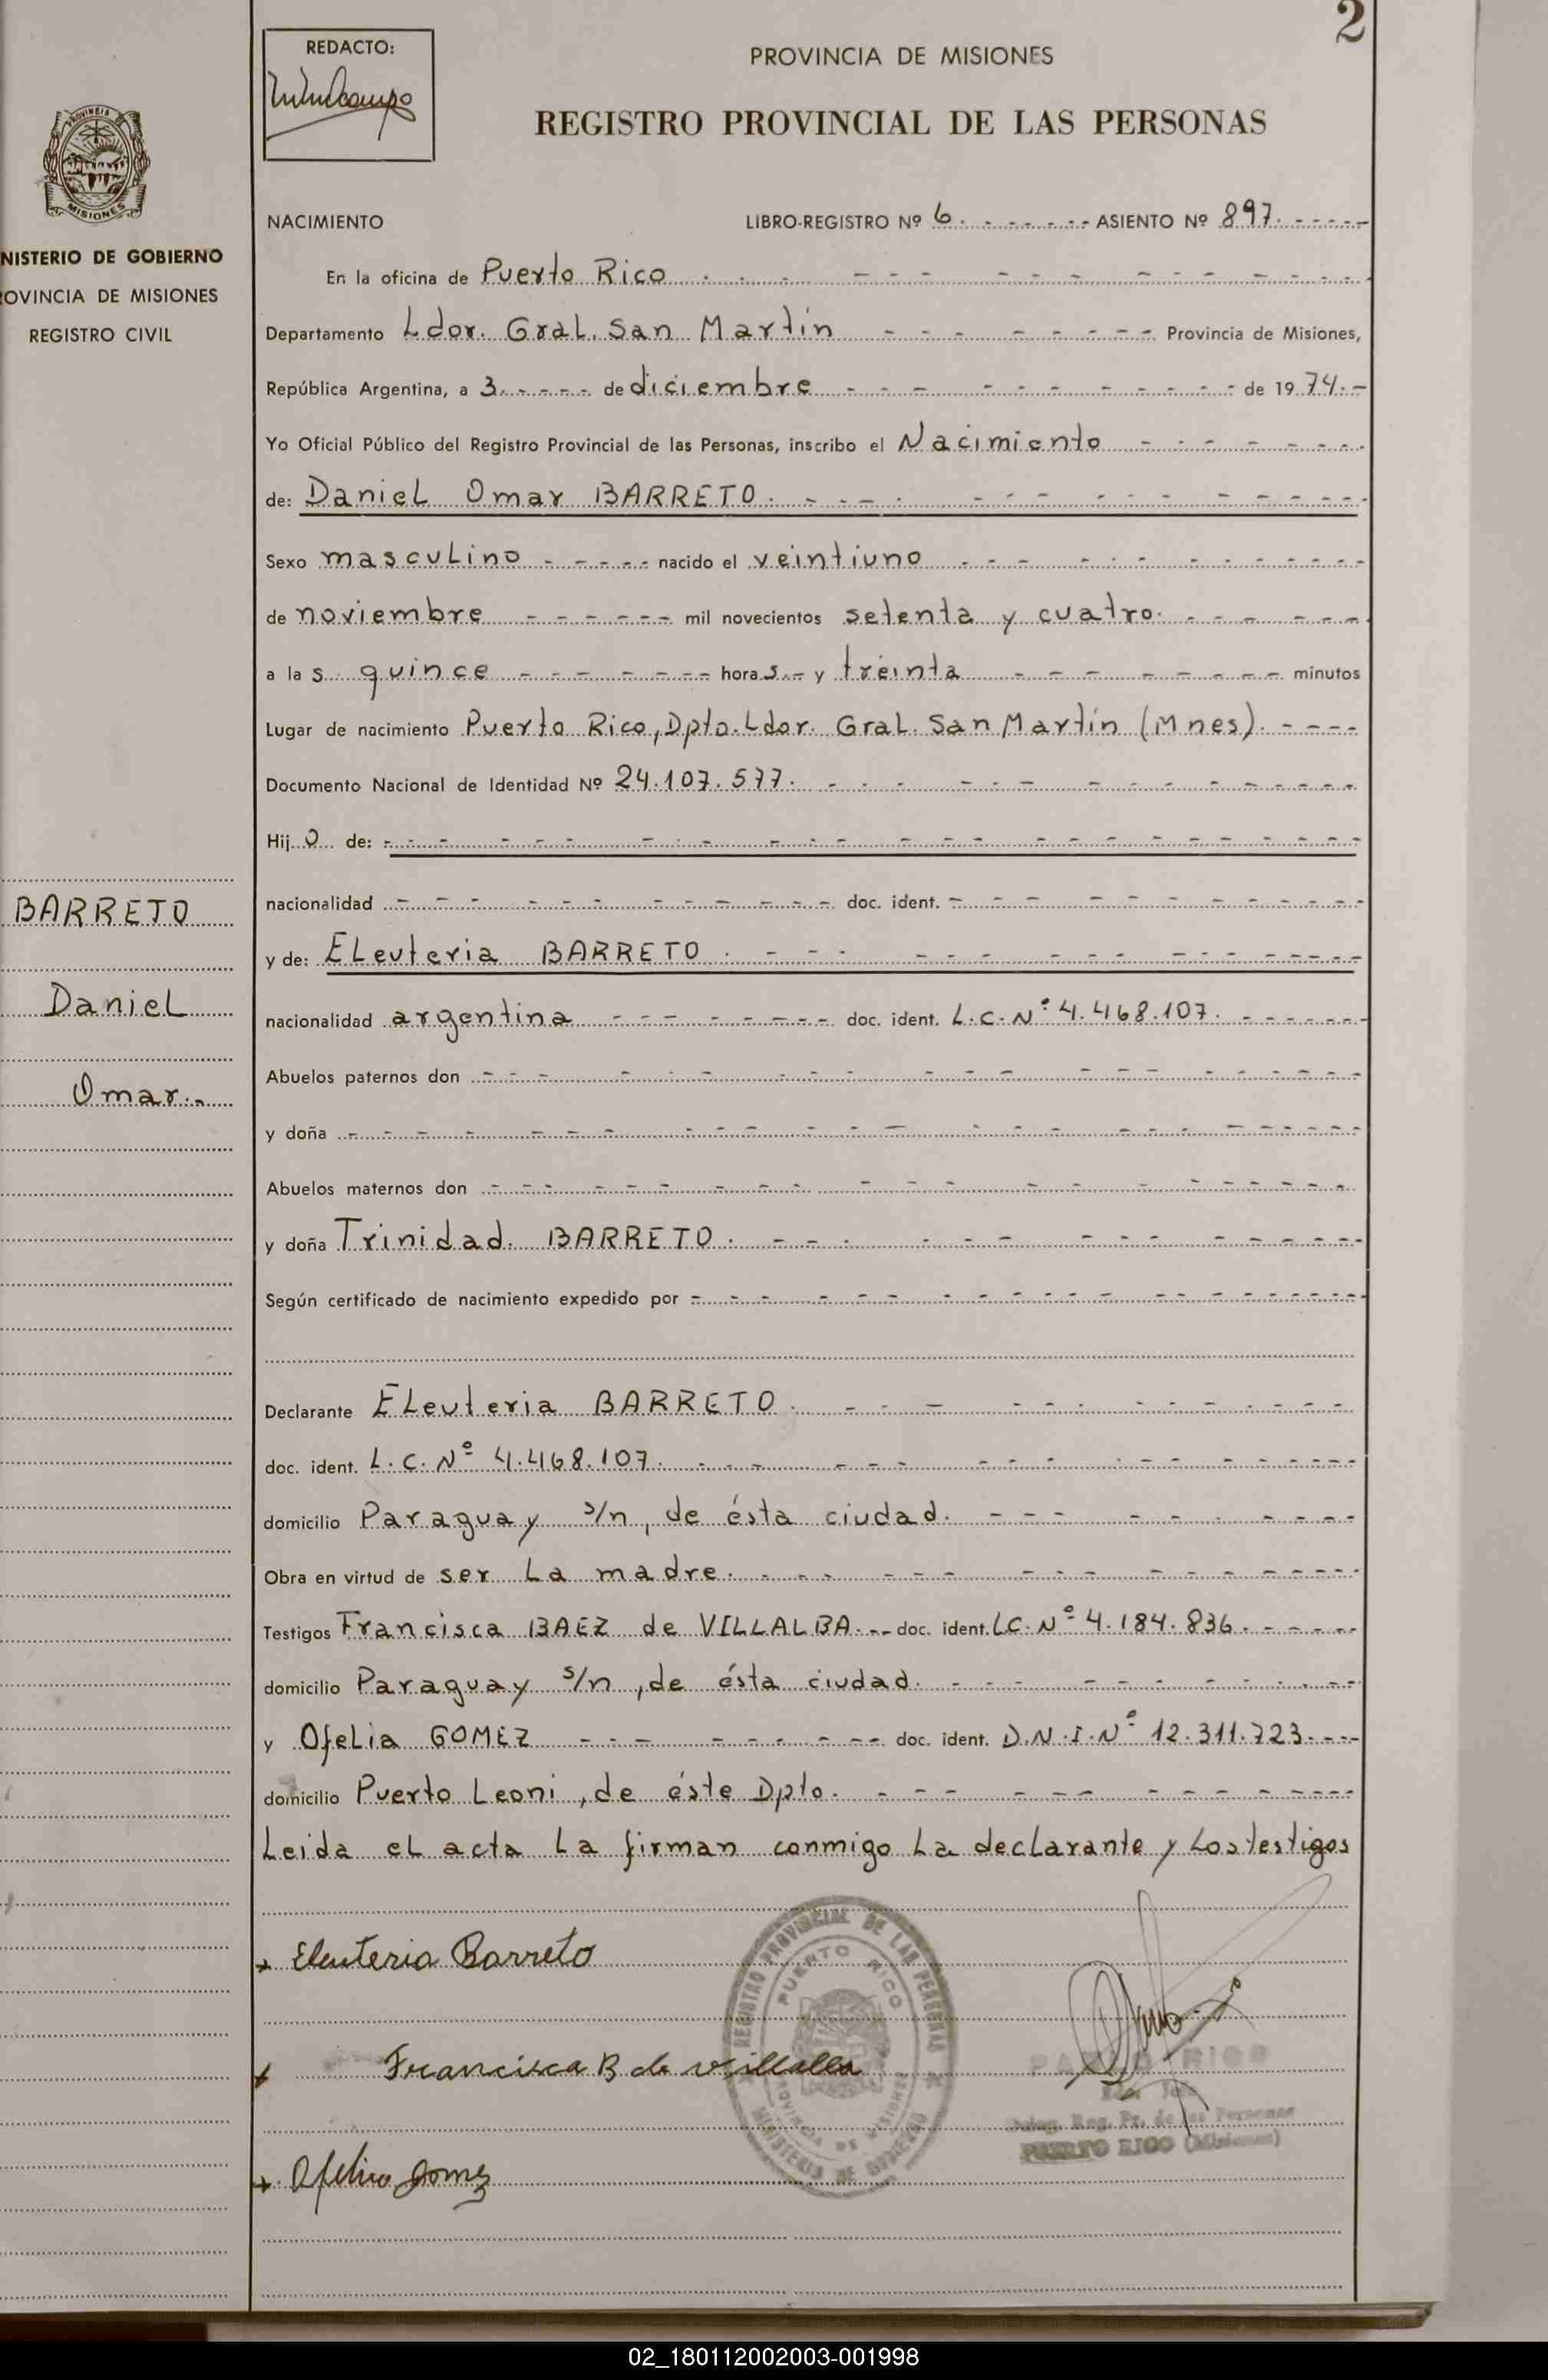 2
REDACTO:
PROVINCIA DE MISIONES
REGISTRO PROVINCIAL DE LAS PERSONAS
MISIONES
NISTERIO DE GOBIERNO
ROVINCIA DE MISIONES
REGISTRO CIVIL
NACIMIENTO LIBRO-REGISTRO Nº 6. ASIENTO Nº 897.
En la oficina de Puerto Rico
Departamento Ldor. Gral. San Martín Provincia de Misiones,
República Argentina, a 3 de diciembre de 1974.-
Yo Oficial Público del Registro Provincial de las Personas, inscribo el Nacimiento
de: Daniel Omar BARRETO.
Sexo masculino nacido el veintiuno
de noviembre mil novecientos setenta y cuatro.
a las quince horas.- y treinta minutos
Lugar de nacimiento Puerto Rico, Dpto. Ldor. Gral. San Martín (Mnes).
Documento Nacional de Identidad Nº 24.107.577.
Hijo de:
nacionalidad doc. ident.
y de: Eleuteria BARRETO.
nacionalidad argentina doc. ident. L.C. Nº 4.468.107.
Abuelos paternos don
y doña
Abuelos maternos don
y doña Trinidad BARRETO.
Según certificado de nacimiento expedido por
Declarante Eleuteria BARRETO.
doc. ident. L.C. Nº 4.468.107.
domicilio Paraguay s/n, de ésta ciudad.
Obra en virtud de ser la madre.
Testigos Francisca BAEZ de VILLALBA.-- doc. ident. LC. Nº 4.184.836.
domicilio Paraguay s/n, de ésta ciudad.
y Ofelia GOMEZ doc. ident. D.N.I. Nº 12.311.723.
domicilio Puerto Leoni, de éste Dpto.
Leida el acta la firman conmigo la declarante y los testigos
BARRETO
Daniel
Omar.-
Eleuteria Barreto
Francisca B de Villalba
Ofelia Gomez
REGISTRO PROVINCIAL DE LAS PERSONAS
PUERTO RICO
PROVINCIA DE MISIONES
MINISTERIO DE GOBIERNO
Reg. Pr. de las Personas
PUERTO RICO (Misiones)
02_180112002003-001998